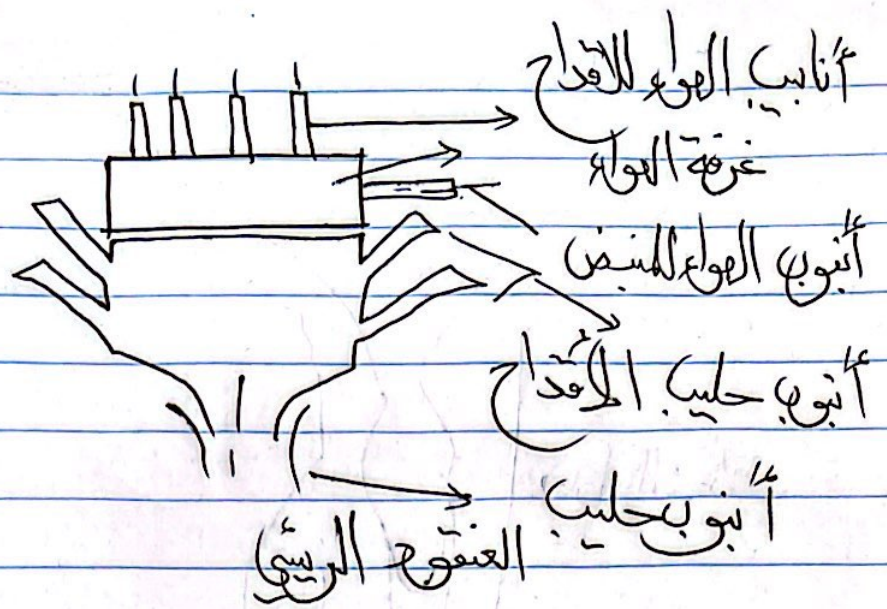 أنابيب الهواء للأقداح
غرفة الهواء
أنبوب الهواء للمنبض
أنبوب حليب الأقداح
أنبوب حليب
العنقود الرئيسي